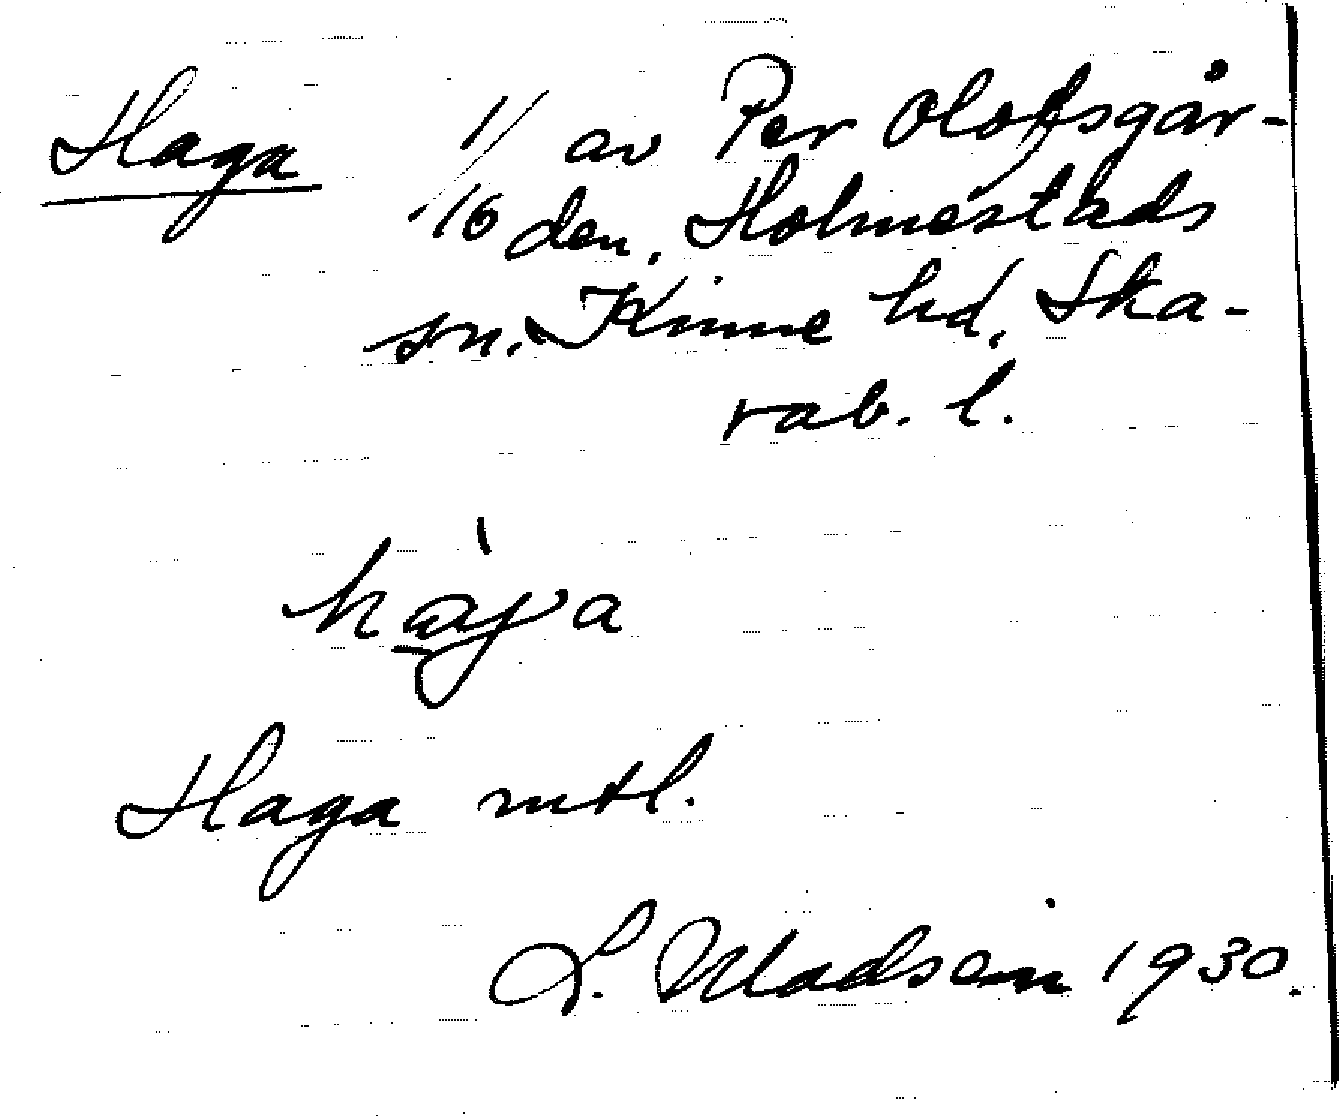 Haga 1/16 av Per Olofsgår-
den, Holmestads
sn. Kinne hd, Ska-
rab. l.
hàγa
Haga mtl.
1930.